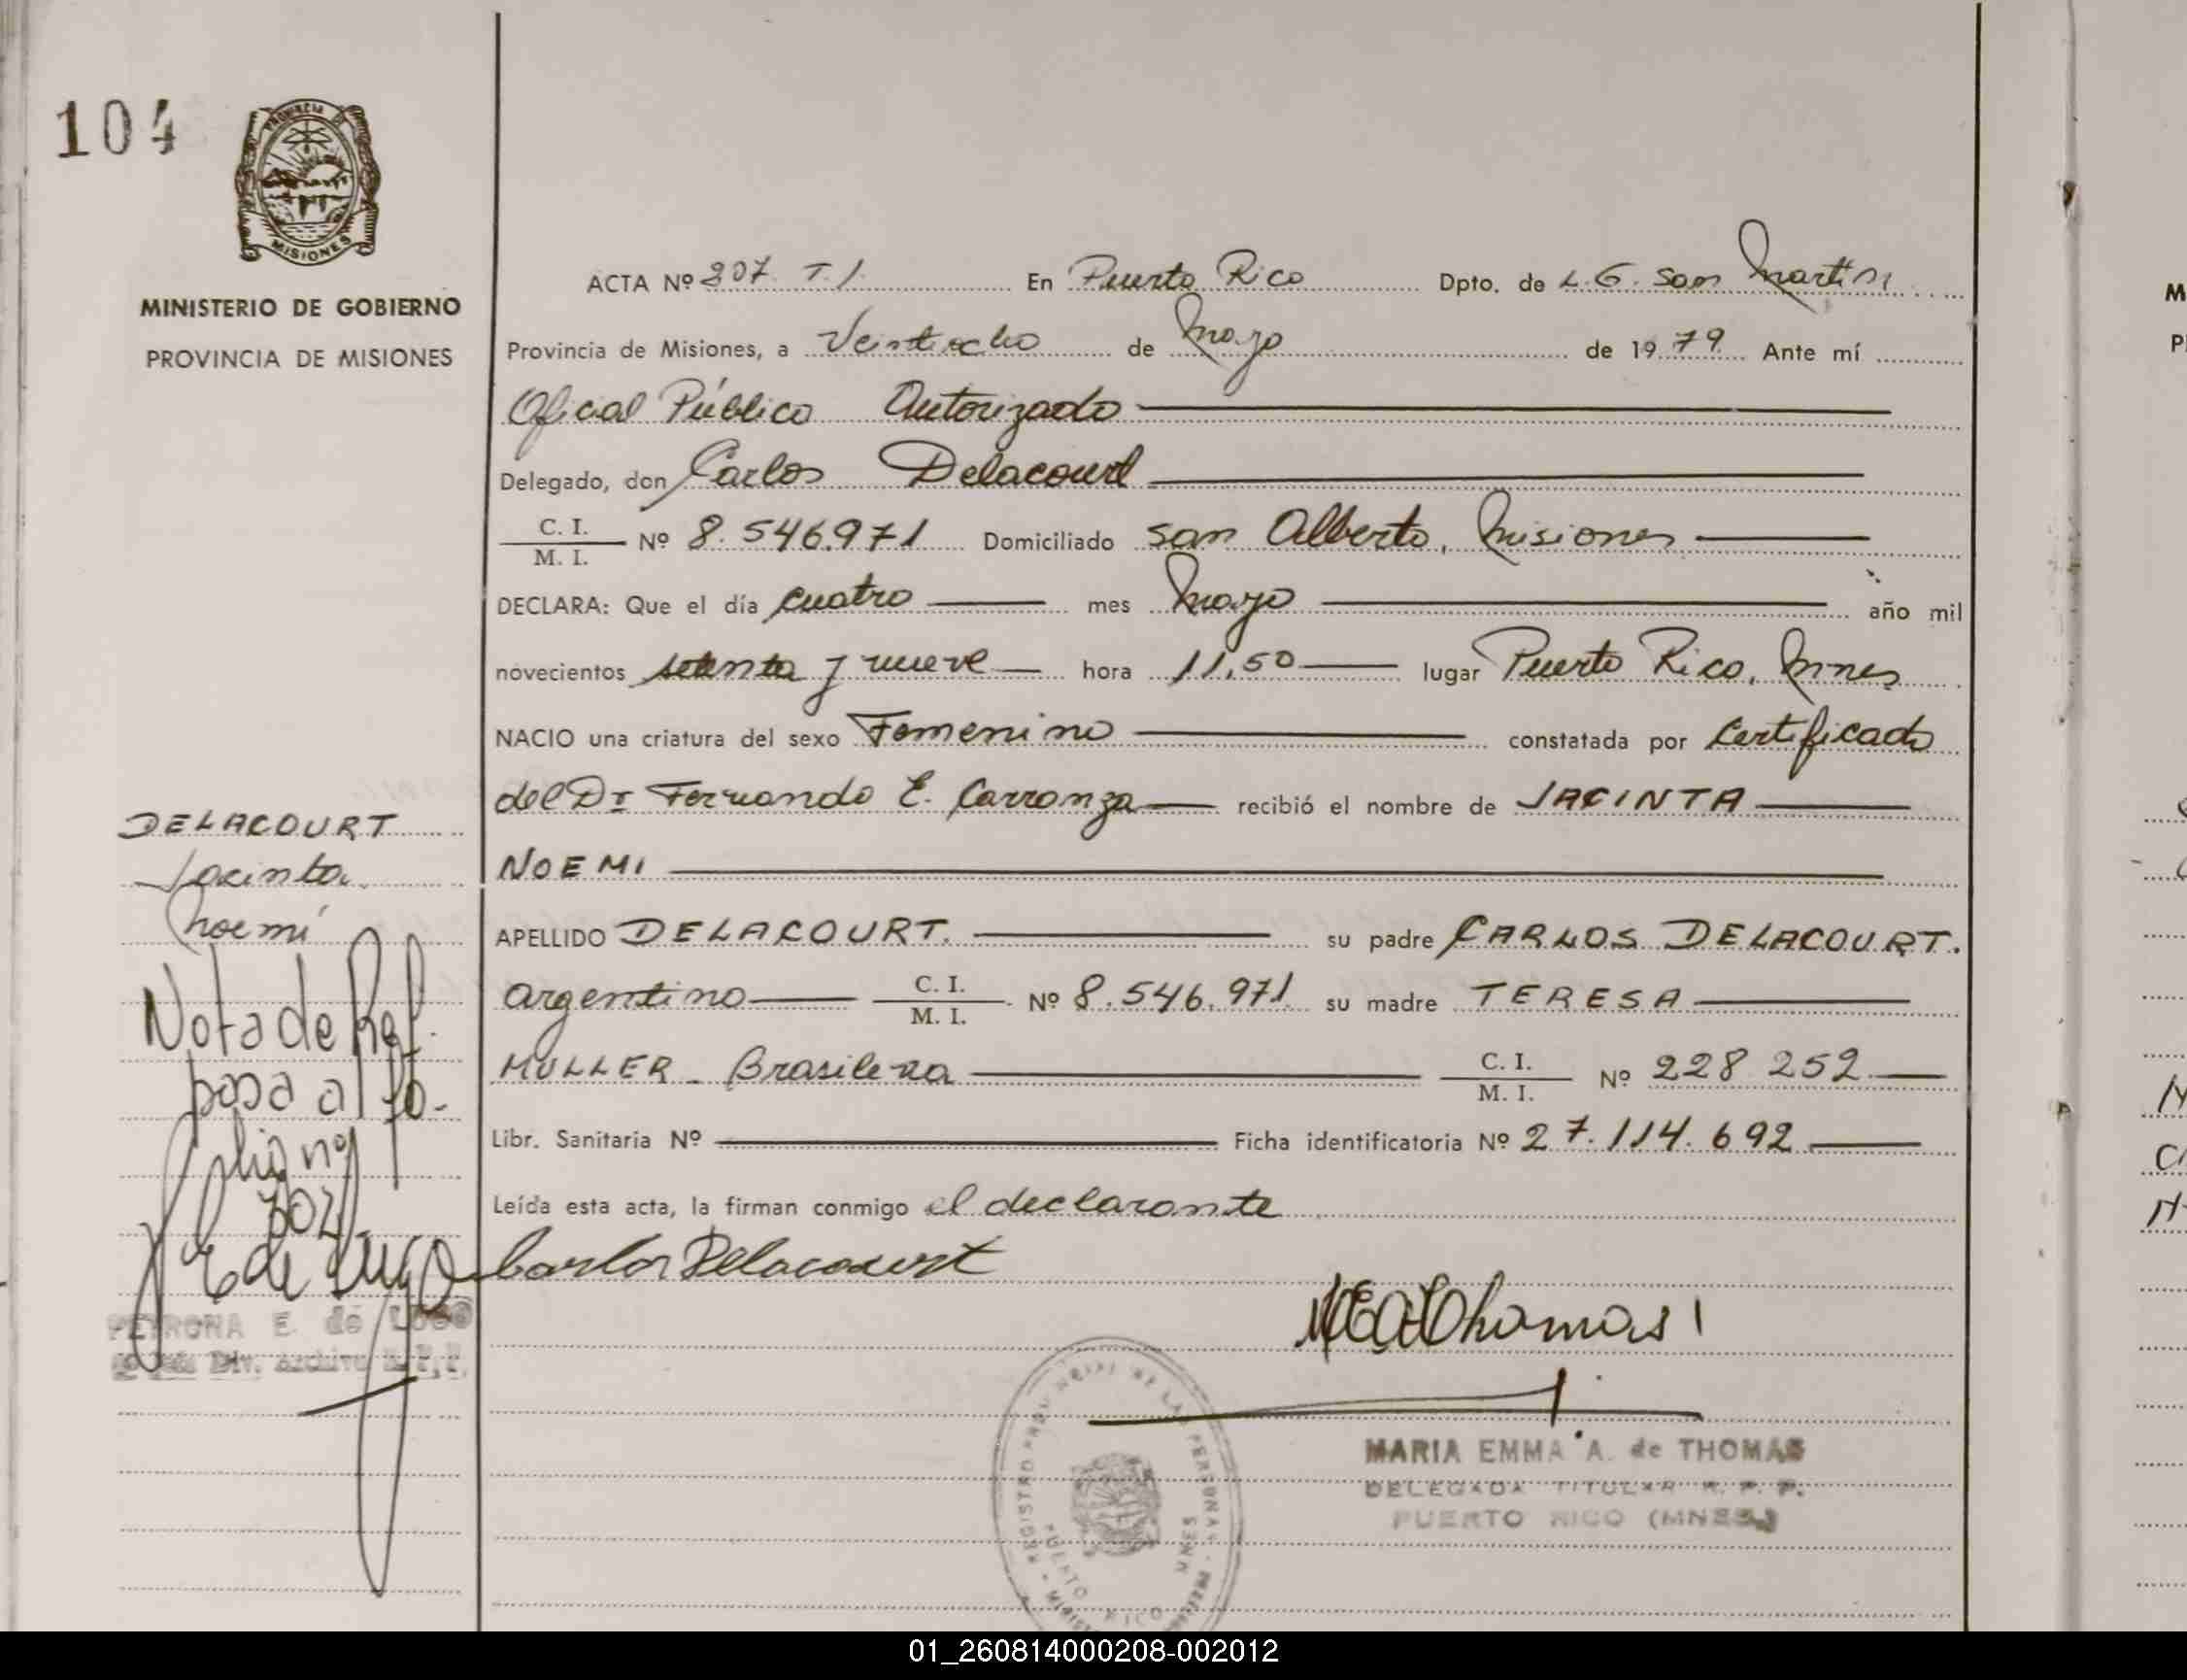 104
PROVINCIA DE
MISIONES
MINISTERIO DE GOBIERNO
PROVINCIA DE MISIONES
ACTA Nº 207 T.1. En Puerto Rico Dpto. de L.G. San Martín
Provincia de Misiones, a Veintiocho de Mayo de 1979 Ante mí
Oficial Público Autorizado
Delegado, don Carlos Delacourt
C. I.
M. I.
Nº 8.546.971 Domiciliado San Alberto, Misiones
DECLARA: Que el día cuatro mes Mayo año mil
novecientos setenta y nueve hora 11,50 lugar Puerto Rico, Mnes
NACIO una criatura del sexo Femenino constatada por Certificado
del Dr Fernando E. Carranza recibió el nombre de JACINTA
NOEMI
APELLIDO DELACOURT. su padre CARLOS DELACOURT.
Argentino C. I.
M. I.
Nº 8.546.971 su madre TERESA
MULLER - Brasilera C. I.
M. I.
Nº 228.252
Libr. Sanitaria Nº Ficha identificatoria Nº 27.114.692
Leída esta acta, la firman conmigo el declarante
Carlos Delacourt
MEAThomas
MARIA EMMA A. de THOMAS
DELEGADA TITULAR R. P. P.
PUERTO RICO (MNES.)
REGISTRO PROVINCIAL DE LAS PERSONAS
PUERTO RICO
MNES
DELACOURT
Jacinta
Noemí
Nota de Ref.
pasa al fo-
PETRONA E. de LUGO
Div. Archivo R.P.P.
01_260814000208-002012